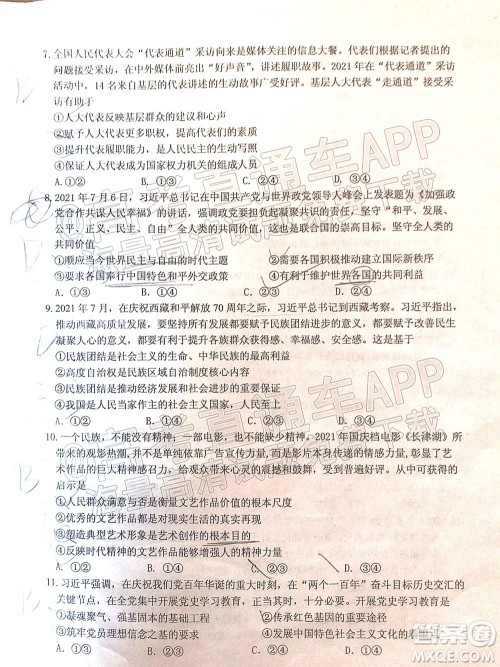 7. 全国人民代表大会“代表通道”采访向来是媒体关注的信息大餐。代表们根据记者提出的
问题接受采访，在中外媒体前亮出“好声音”，讲述履职故事。2021年在“代表通道”采访
活动中，14名来自基层的代表讲述的生动故事广受好评。基层人大代表“走通道”接受采
访有助于
①人大代表反映基层群众的建议和心声
②赋予人大代表更多职权，提升代表们的素质
③展示我国民主的真实性，是人民民主的生动实践
④保证人大代表成为国家权力机关的组成人员
A. ①② B. ①③ C. ②④ D. ③④
8. 2021年7月6日，习近平总书记在中国共产党与世界政党领导人峰会上发表题为《加强政
党合作共谋人民幸福》的讲话，强调政党要担负起凝聚共识的责任，坚守“和平、发展、
公平、正义、民主、自由的全人类共同价值”，这也是联合国的崇高目标。坚守全人类的共
同价值
①顺应当今世界民主与自由的时代主题
②需要各国积极推动建立国际新秩序
③要求各国奉行中国特色和平外交政策
④
A. ①② B. ①③ C. ②④ D. ③④
9. 2021年7月，在庆祝西藏和平解放70周年之际，习近平总书记到西藏考察。习近平指出，
推动西藏高质量发展，要坚持所有发展都要赋予民族团结进步的意义，都要赋予改善民生、
凝聚人心的意义，都要有利于提升各族群众获得感、幸福感、安全感。这是基于
①民族团结是社会主义的生命、中华民族的最高利益
②高度自治权是我国民族区域自治制度的核心内容
③民族团结是推动民族地区经济发展和社会进步的保证
④我国是人民当家作主的社会主义国家
A. ①② B. ①③ C. ②④ D. ③④
10. 一个民族，不能没有精神；一部电影，也不能没有精神。2021年国庆档电影《长津湖》带
来的观影热潮，并不是单纯依靠广告与营销，而是因为其承载的抗美援朝精神，是高超的
艺术与巨大精神能量，给观众带来心灵的震撼和鼓舞，受到普遍好评。从该电影的热播得到的
启示是
①人民群众满意与否是衡量文艺作品价值的根本尺度
②优秀的文艺作品是文化与现实生活的
③塑造典型艺术形象是文艺创作的根本目的
④反映时代精神的文艺作品能够增强人的精神力量
A. ①② B. ①④ C. ②③ D. ③④
11. 习近平强调，在庆祝我们党百年华诞的重大时刻，在“两个一百年”奋斗目标历史交汇的
关键节点，在全党集中开展党史学习教育，正当其时，十分必要。开展党史学习教育，有
利于
①凝魂聚气、强基固本的基础工程
②
③筑牢党员理想信念之基的重要
④